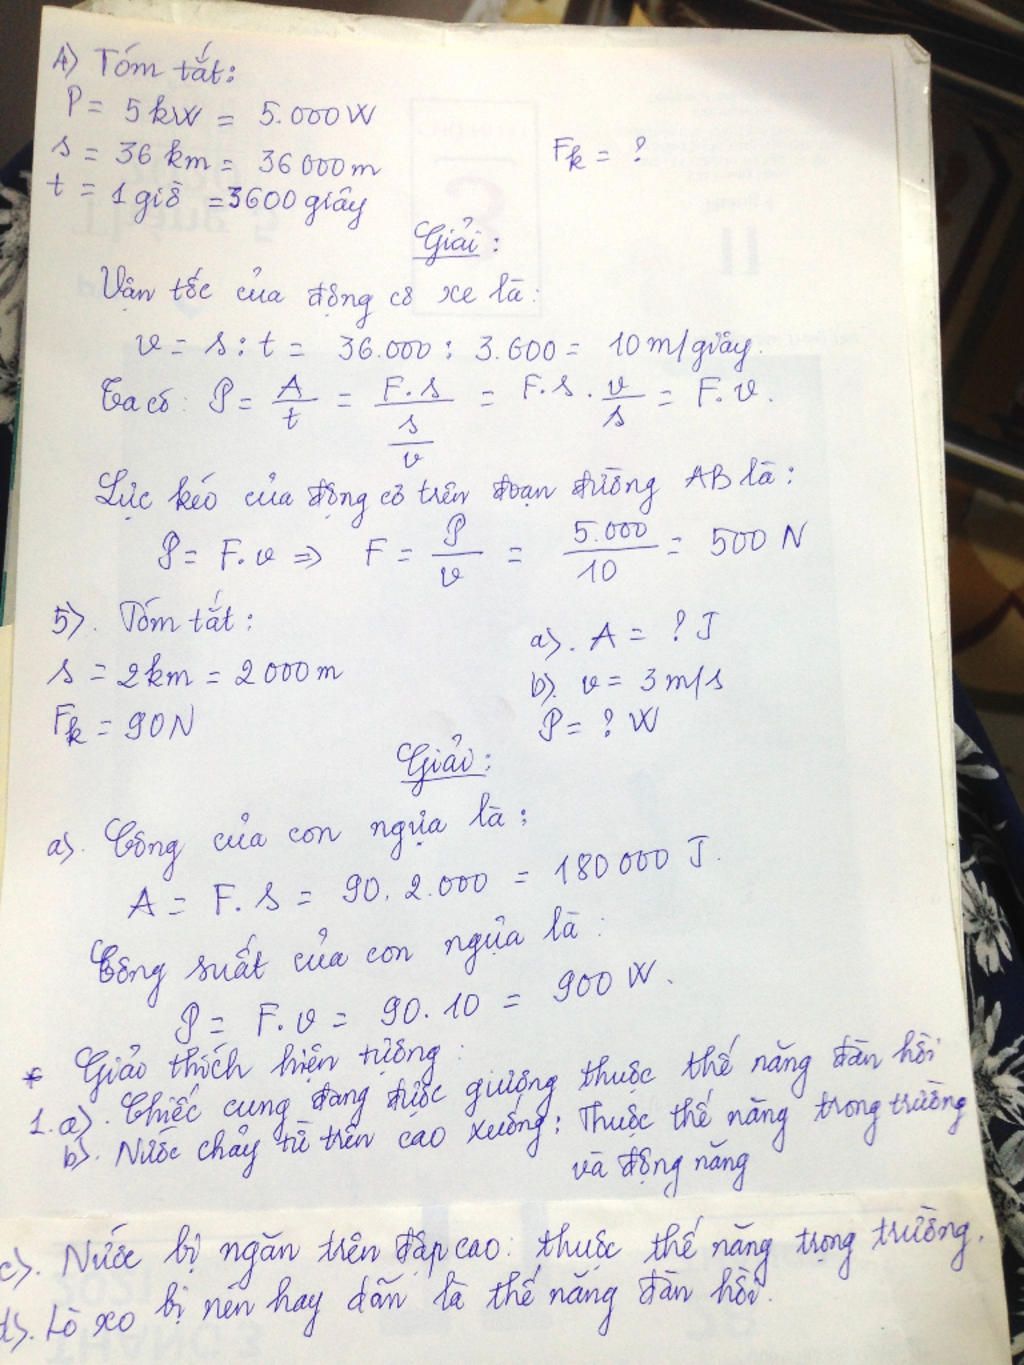 4) Tóm tắt:
P = 5kW = 5.000W
s = 36 km = 36 000m
Fk = ?
t = 1 giờ = 3600 giây
Giải:
Vận tốc của động cơ xe là:
v = s : t = 36.000 : 3.600 = 10 m/giây.
Ta có: P = A/t = F.s/(s/v) = F.s . v/s = F.v.
Lực kéo của động cơ trên đoạn đường AB là:
P = F.v => F = P/v = 5.000/10 = 500 N
5). Tóm tắt:
a). A = ? J
s = 2km = 2 000m
b). v = 3 m/s
Fk = 90N
P = ? W
Giải:
a). Công của con ngựa là:
A = F.s = 90.2.000 = 180 000 J.
Công suất của con ngựa là:
P = F.v = 90.10 = 900 W.
* Giải thích hiện tượng:
1.a). Chiếc cung đang được giương thuộc thế năng đàn hồi
b). Nước chảy từ trên cao xuống: Thuộc thế năng trong trường
và động năng
c). Nước bị ngăn trên đập cao: thuộc thế năng trọng trường.
d). Lò xo bị nén hay dãn là thế năng đàn hồi.